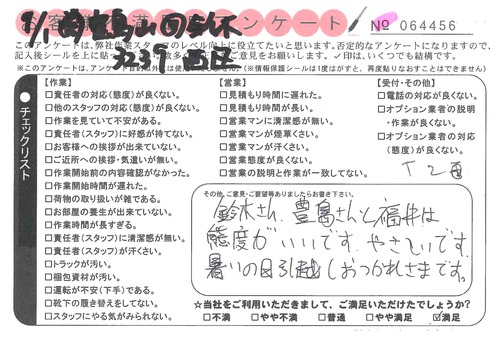 アンケート
№ 064456
このアンケートは、弊社作業スタッフのレベル向上に役立てたいと思います。否定的なアンケートになりますので、
ご意見をお願いします。✓印は、いくつでも結構です。
(※情報保護シールは1度はがすと、再度貼りなおすことはできません)
チェックリスト
【作業】
□責任者の対応(態度)が良くない。
□他のスタッフの対応(態度)が良くない。
□作業を見ていて不安がある。
□責任者(スタッフ)に好感が持てない。
□お客様への挨拶が出来ていない。
□ご近所への挨拶・気遣いが無い。
□作業開始前の内容確認がなかった。
□作業開始時間が遅れた。
□荷物の取り扱いが雑である。
□お部屋の養生が出来ていない。
□作業時間が長すぎる。
□責任者(スタッフ)に清潔感が無い。
□責任者(スタッフ)が汗くさい。
□トラックが汚い。
□梱包資材が汚い。
□運転が不安(下手)である。
□靴下の履き替えをしてない。
□スタッフにやる気がみられない。
【営業】
□見積もり時間に遅れた。
□見積もり時間が長い。
□営業マンに清潔感が無い。
□営業マンが煙草くさい。
□営業マンが汗くさい。
□営業態度が良くない。
□営業の説明と作業が一致してない。
【受付・その他】
□電話の対応が良くない。
□オプション業者の説明
・作業が良くない。
□オプション業者の対応
(態度)が良くない。
その他、ご意見・ご要望等ありましたらお書き下さい。
鈴木さん、豊島さんと福井は
態度がいいです。やさしいです。
暑いの日引越しおつかれさまです。
☆当社をご利用いただきまして、ご満足いただけたでしょうか?
□不満 □やや不満 □普通 □やや満足 ☑満足